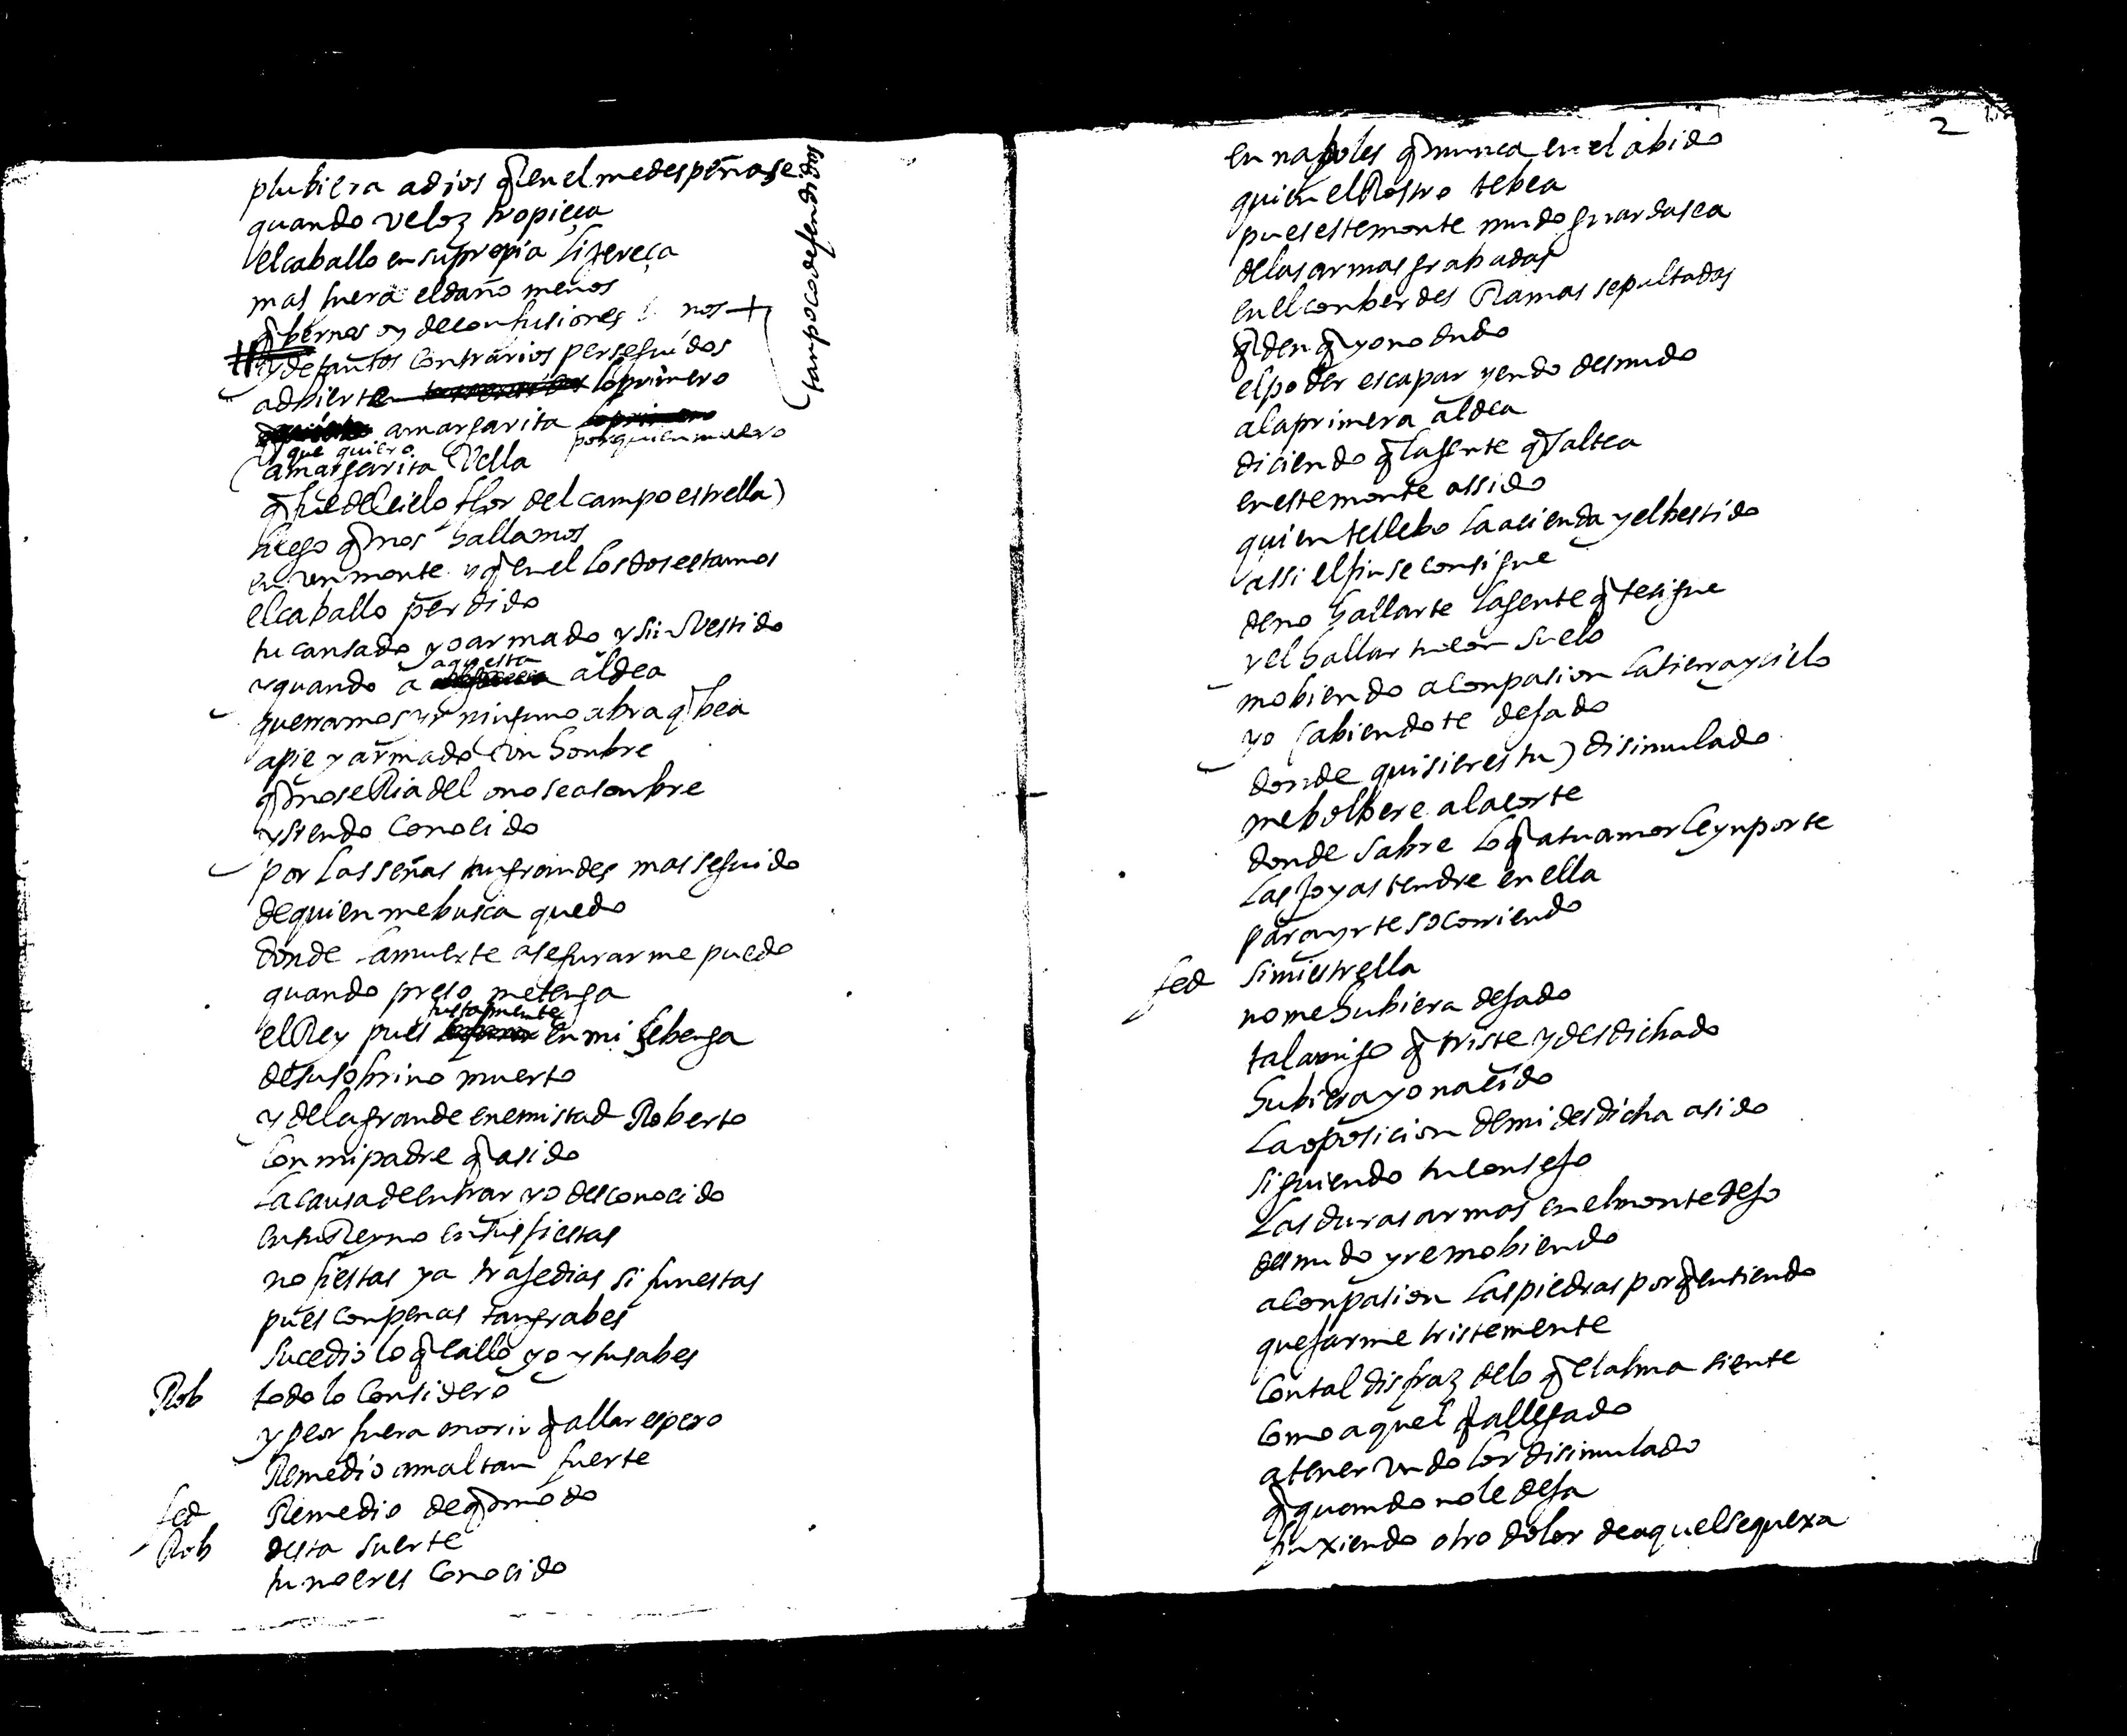 plubiera a dios q̃ en el me despeñase
quando veloz tropieça
el caballo en su propia lixereça
mas fuera el daño menos
q̃ bernos oy de confusiones nos +
tan poco defendidos
# y de tantos contrarios perseguidos
adbierte lo primero
a margarita
que quiero porquien muero
(a margarita vella
q̃ fue del cielo flor del campo estrella)
luego q̃ nos hallamos
en un monte y q̃ en el los dos estamos
el caballo perdido
tu cansado yo armado y sin vestido
y quando a aquesta aldea
queramos yr ninguno abra q̃ bea
a pie y armado un honbre
q̃ no se Ria del o no se asonbre
y siendo conocido
por las señas tan grandes mas seguido
de quien me busca quedo
donde la muerte asegurarme puedo
quando preso me tenga
el Rey pues justamente en mi se benga
de su sobrino muerto
y de la grande enemistad Roberto
con mi padre q̃ a sido
la causa de entrar yo desconocido
en su Reyno en sus fiestas
no fiestas ya trajedias si funestas
pues con penas tan grabes
sucedio lo q̃ callo yo y tu sabes
Rob todo lo considero
y peor fuera morir q̃ allar espero
Remedio a mal tan fuerte
fed Remedio de q̃ modo
Rob desta suerte
tu no eres conocido
2
en napoles q̃ nunca en el abido
quien el Rostro te bea
pues este monte mudo guarda sea
de las armas grabadas
en el con berdes Ramas sepultadas
q̃den q̃ yo no dudo
el poder escapar yendo desnudo
a la primera aldea
diciendo q̃ la gente q̃ saltea
en este monte assido
quien te llebo la acienda y el bestido
assi el fin se consigue
de no hallarte la gente q̃ te sigue
y el hallar tu consuelo
mobiendo a conpasion la tierra y cielo
yo (abiendote dejado
donde quisieres tu) disimulado
me bolbere a la corte
donde sabre lo q̃ a tu amor le ynporte
las joyas tendre en ella
para yrte socorriendo
fed si mi estrella
no me hubiera dejado
tal amigo q̃ triste y desdichado
hubiera yo nacido
la oposicion de mi desdicha a sido
siguiendo tu consejo
las duras armas en el monte dejo
desnudo yre mobiendo
a conpasion las piedras porq̃ entiendo
quejarme tristemente
con tal disfraz de lo q̃ el alma siente
como aquel q̃ a llegado
a tener un dolor disimulado
q̃ quando no le deja
finxiendo otro dolor de aquel se quexa